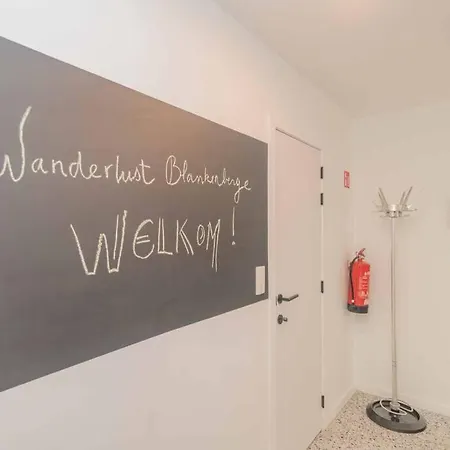 Wanderlust Blankenberge
WELKOM!